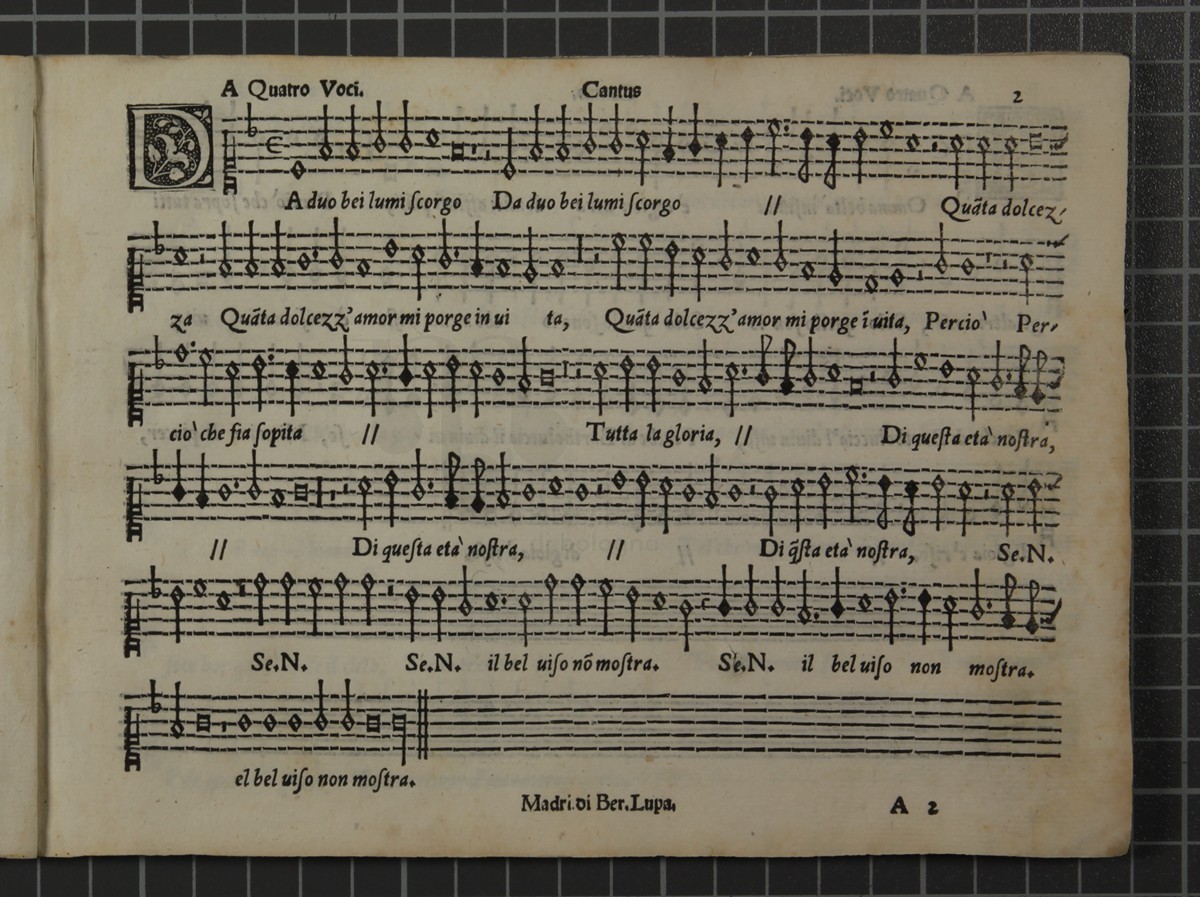 A Quatro Voci. Cantus 2
DA duo bei lumi ſcorgo Da duo bei lumi ſcorgo // Quãta dolcez,
za Quãta dolcezz'amor mi porge in ui ta, Quãta dolcezz'amor mi porge ĩ uita, Percio` Per,
cio` che fia ſopita // Tutta la gloria, // Di queſta eta` noſtra,
// Di queſta eta` noſtra, // Di q̃ſta eta` noſtra, Se.N.
Se.N. Se.N. il bel uiſo nõ moſtra. Se.N. il bel uiſo non moſtra.
el bel uiſo non moſtra.
Madri.di Ber.Lupa. A 2